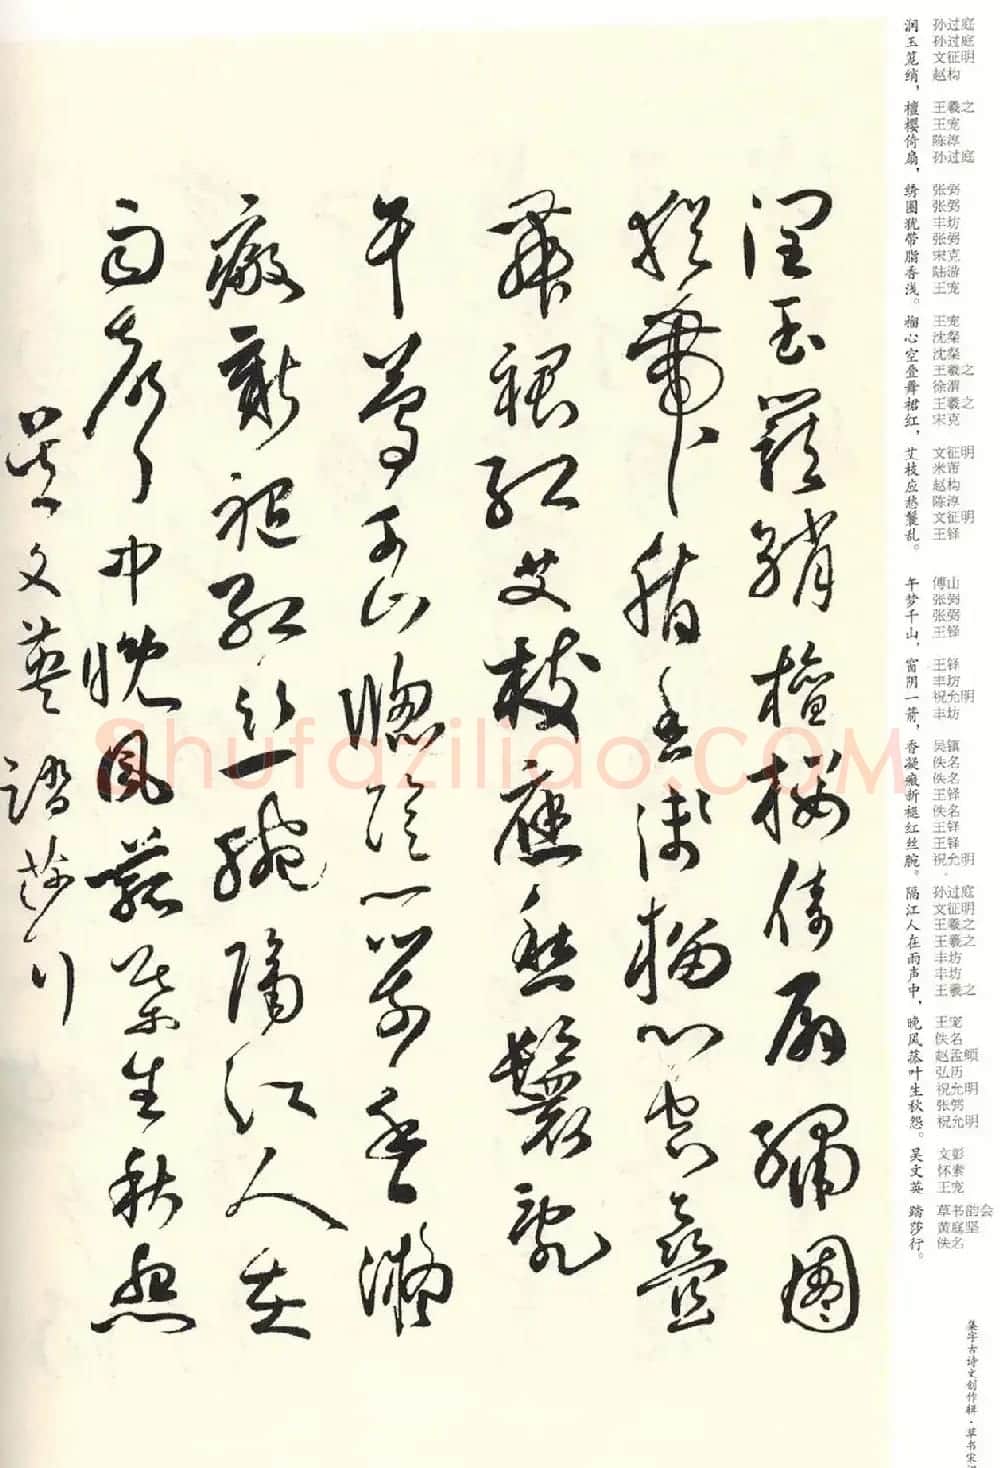 潤玉籠綃檀櫻倚扇繡圈
猶帶脂香淺榴心空疊
舞裙紅艾枝應愁鬟亂
午夢千山窗陰一箭香凝
瘢新褪紅絲腕隔江人在
雨聲中晚風菰葉生秋怨
吳文英踏莎行
润 孙过庭
玉 孙过庭
笼 文征明
绡, 赵构
檀 王羲之
樱 王宠
倚 陈淳
扇, 孙过庭
绣 张弼
圈 张弼
犹 丰坊
带 张弼
脂 宋克
香 陆游
浅。 王宠
榴 王宠
心 沈粲
空 沈粲
叠 王羲之
舞 徐渭
裙 王羲之
红, 宋克
艾 文征明
枝 米芾
应 赵构
愁 陈淳
鬟 文征明
乱。 王铎
午 傅山
梦 张弼
千 张弼
山, 王铎
窗 王铎
阴 丰坊
一 祝允明
箭, 丰坊
香 吴镇
凝 佚名
瘢 佚名
新 王铎
褪 佚名
红 王铎
丝 王铎
腕。 祝允明
隔 孙过庭
江 文征明
人 王羲之
在 王羲之
雨 丰坊
声 丰坊
中, 王羲之
晚 王宠
风 佚名
菰 赵孟頫
叶 弘历
生 祝允明
秋 张弼
怨。 祝允明
吴 文彭
文 怀素
英 王宠
踏 草书韵会
莎 黄庭坚
行。 佚名
集字古诗文创作辑·草书宋词
Shufaziliao.COM